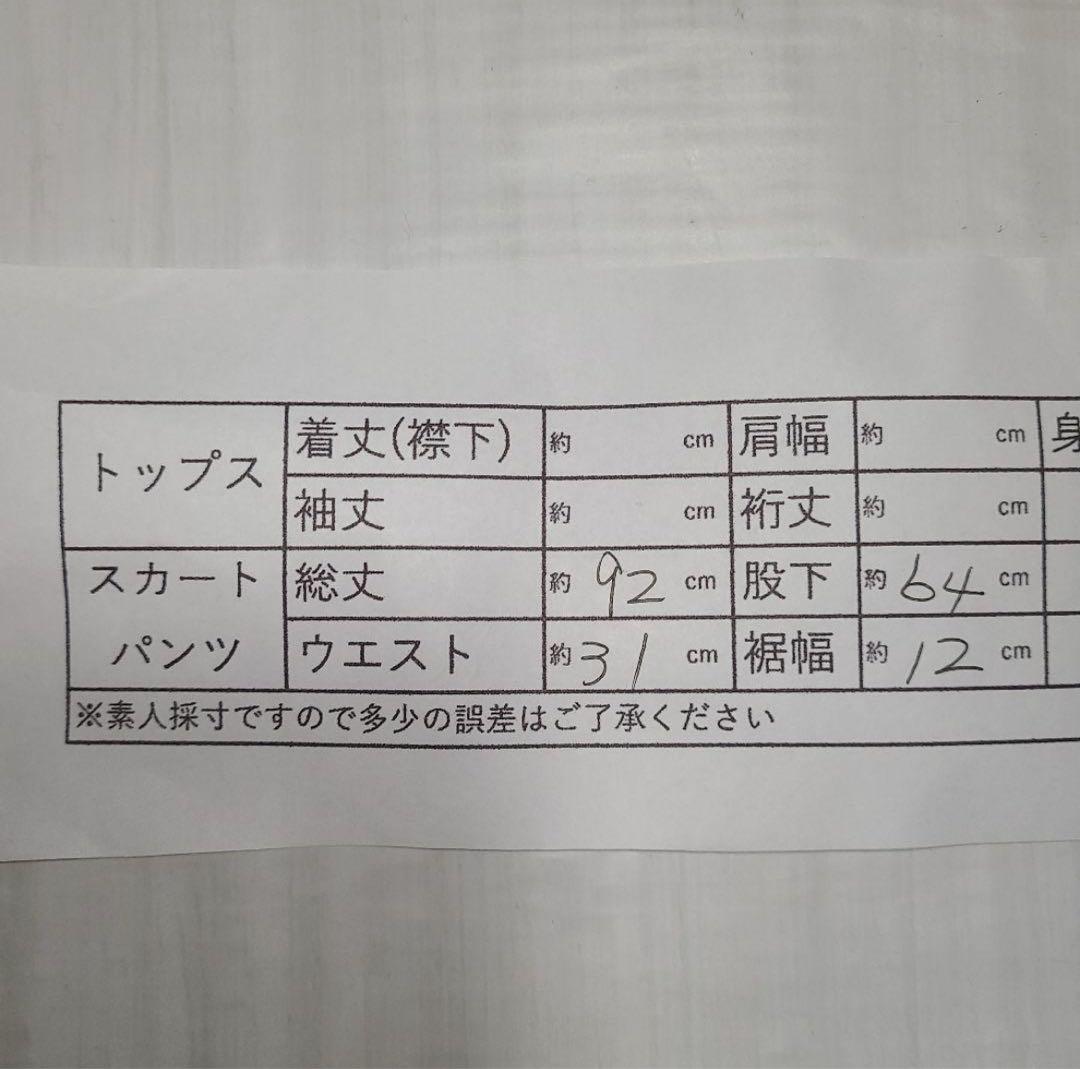 トップス 着丈(襟下) 約 cm 肩幅 約 cm 身
袖丈 約 cm 裄丈 約 cm
スカート 総丈 約 92 cm 股下 約 64 cm
パンツ ウエスト 約 31 cm 裾幅 約 12 cm
※素人採寸ですので多少の誤差はご了承ください